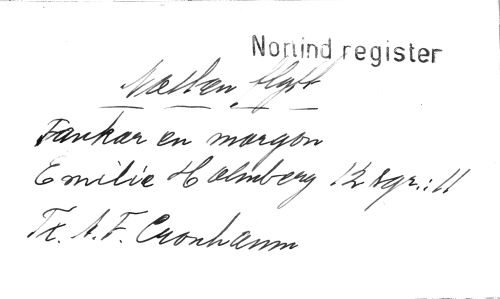 Norlind register
Natten flytt
Tankar en morgon
Emilie Holmberg 12 sgr.: 11
Tx. A. F. Cronhamn